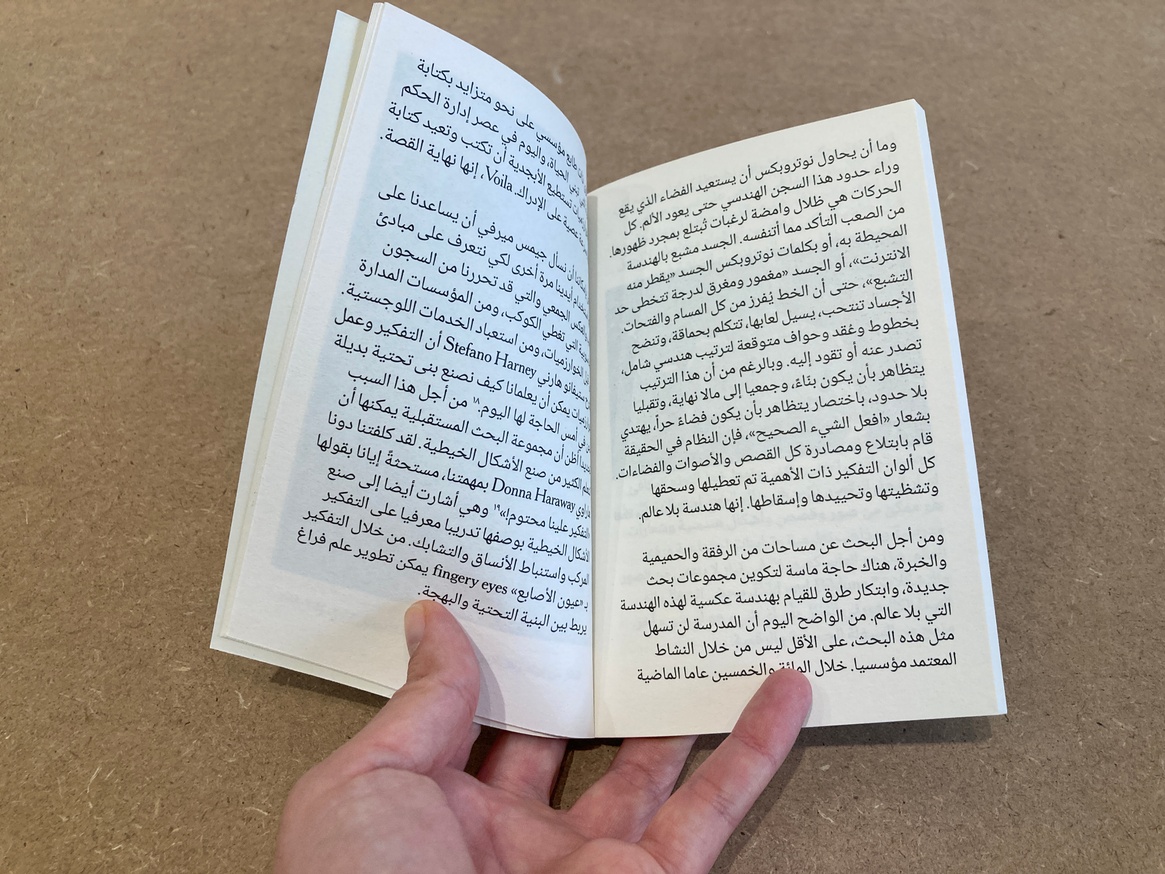 وما أن يحاول نوتروبكس أن يستعيد الفضاء الذي يقع
وراء حدود هذا السجن الهندسي حتى يعود الألم. كل
الحركات هي ظلال وامضة لرغبات تُبتلع بمجرد ظهورها.
من الصعب التأكد مما أتنفسه. الجسد مشبع بالهندسة
المحيطة به، أو بكلمات نوتروبكس الجسد «يقطر منه
الانترنت»، أو الجسد «مغمور ومغرق لدرجة تتخطى حد
التشبع»، حتى أن الخط يُفرز من كل المسام والفتحات.
الأجساد تنتحب، يسيل لعابها، تتكلم بحماقة، وتنضح
بخطوط وعُقد وحواف متوقعة لترتيب هندسي شامل،
تصدر عنه أو تقود إليه. وبالرغم من أن هذا الترتيب
يتظاهر بأن يكون بنّاءً، وجمعيا إلى مالا نهاية، وتقبليا
بلا حدود، باختصار يتظاهر بأن يكون فضاءً حراً، يهتدي
بشعار «افعل الشيء الصحيح»، فإن النظام في الحقيقة
قام بابتلاع ومصادرة كل القصص والأصوات والفضاءات.
كل ألوان التفكير ذات الأهمية تم تعطيلها وسحقها
وتشظيتها وتحييدها وإسقاطها. إنها هندسة بلا عالم.
ومن أجل البحث عن مساحات من الرفقة والحميمية
والخبرة، هناك حاجة ماسة لتكوين مجموعات بحث
جديدة، وابتكار طرق للقيام بهندسة عكسية لهذه الهندسة
التي بلا عالم. من الواضح اليوم أن المدرسة لن تسهل
مثل هذه البحث، على الأقل ليس من خلال النشاط
المعتمد مؤسسيا. خلال المائة والخمسين عاما الماضية
طابع مؤسسي على نحو متزايد بكتابة
الحياة، واليوم في عصر إدارة الحكم
تستطيع الأبجدية أن تكتب وتعيد كتابة
عصية على الإدراك. Voila، إنها نهاية القصة.
أن نسأل جيمس ميرفي أن يساعدنا على
أيدينا مرة أخرى لكي نتعرف على مبادئ
الجمعي والتي قد تحررنا من السجون
التي تغطي الكوكب، ومن المؤسسات المدارة
الخوارزميات، ومن استعباد الخدمات اللوجستية.
ستيفانو هارني Stefano Harney أن التفكير وعمل
يمكن أن يعلمانا كيف نصنع بنى تحتية بديلة
في أمس الحاجة لها اليوم.١٨ من أجل هذا السبب
أظن أن مجموعة البحث المستقبلية يمكنها أن
الكثير من صنع الأشكال الخيطية. لقد كلفتنا دونا
Donna Haraway بمهمتنا، مستحثةً إيانا بقولها
«التفكير علينا محتوم!»١٩ وهي أشارت أيضا إلى صنع
الأشكال الخيطية بوصفها تدريبا معرفيا على التفكير
المركب واستنباط الأنساق والتشابك. من خلال التفكير
بـ «عيون الأصابع» fingery eyes يمكن تطوير علم فراغ
يربط بين البنية التحتية والبهجة.